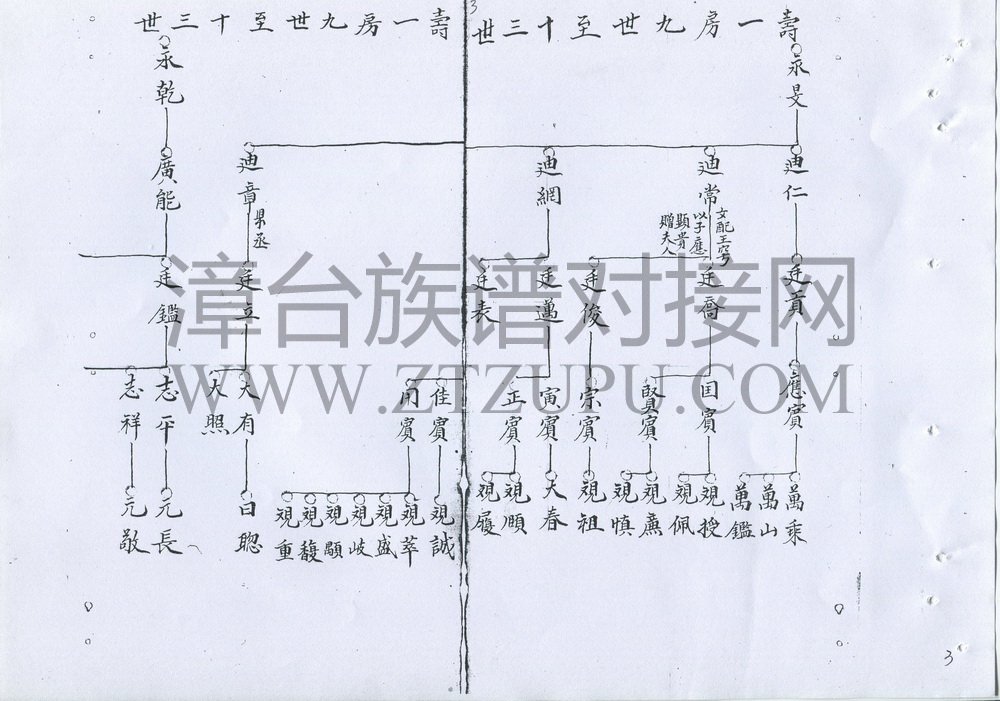 壽一房九世至十三世
永旻
迪仁
迪常
迪網
女配王
以子應
顯貴
贈夫人
廷貢
廷喬
廷俊
廷邁
廷表
應賓
国賓
賢賓
宗賓
寅賓
正賓
萬乘
萬山
萬鑑
視授
視佩
視慎
視祖
大春
視順
視履
3
壽一房九世至十三世
永乾
迪章
縣丞
廣能
廷立
廷鑑
佳賓
開賓
大有
大照
志平
志祥
視誠
視萃
視盛
視岐
視顒
視馥
視重
日聰
元長
元敬
3
漳台族谱对接网
WWW.ZTZUPU.COM